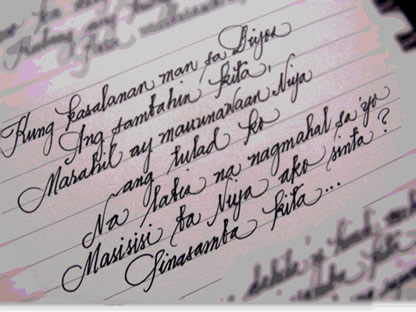 Kung kasalanan man sa Diyos
Ang sambahin kita,
Marahil ay mauunawaan Niya
ang tulad ko
Na labis na nagmahal sa 'yo
Masisisi ba Niya ako sinta?
Sinasamba kita...